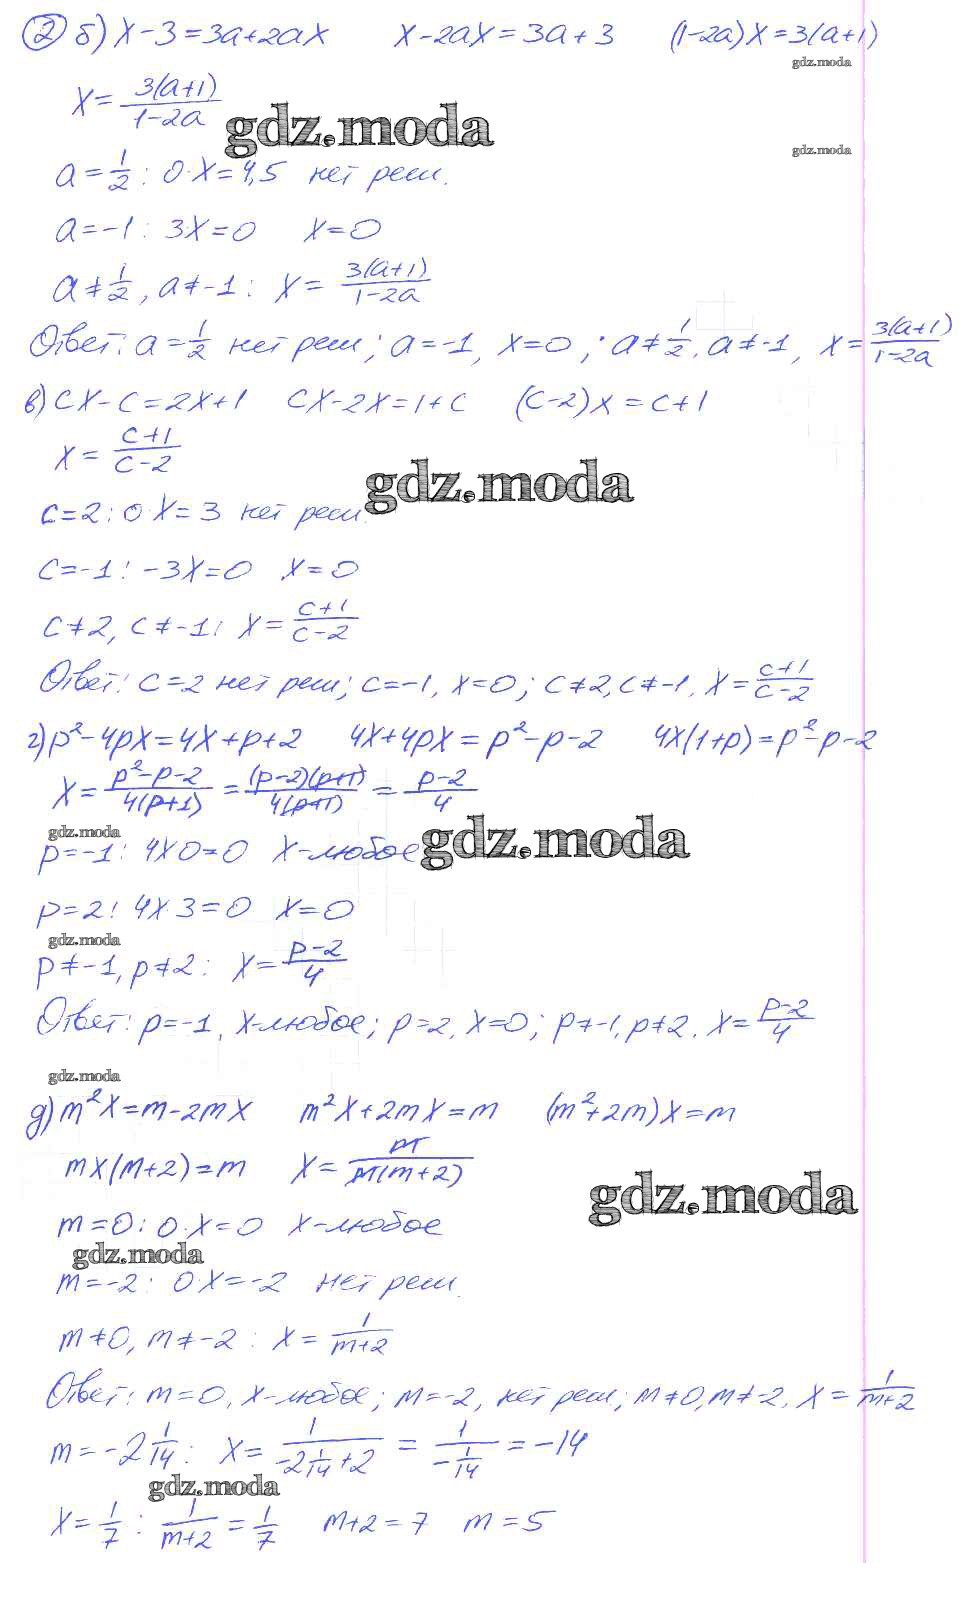 ② б) x-3=3a+2ax x-2ax=3a+3 (1-2a)x=3(a+1)
gdz.moda
x = 3(a+1)/1-2a
gdz.moda
gdz.moda
a=1/2: 0·x=4,5 нет реш.
a=-1: 3x=0 x=0
a≠1/2, a≠-1: x= 3(a+1)/1-2a
Ответ: a=1/2 нет реш; a=-1, x=0; a≠1/2, a≠-1, x= 3(a+1)/1-2a
в) cx-c=2x+1 cx-2x=1+c (c-2)x=c+1
x= c+1/c-2
gdz.moda
c=2: 0·x=3 нет реш.
c=-1: -3x=0 x=0
c≠2, c≠-1: x= c+1/c-2
Ответ: c=2 нет реш; c=-1, x=0; c≠2, c≠-1, x= c+1/c-2
г) p²-4px=4x+p+2 4x+4px=p²-p-2 4x(1+p)=p²-p-2
x= p²-p-2/4(p+1) = (p-2)(p+1)/4(p+1) = p-2/4
gdz.moda
p=-1: 4x0=0 x-любое
gdz.moda
p=2: 4x·3=0 x=0
gdz.moda
p≠-1, p≠2: x= p-2/4
Ответ: p=-1, x-любое; p=2, x=0; p≠-1, p≠2, x= p-2/4
gdz.moda
д) m²x=m-2mx m²x+2mx=m (m²+2m)x=m
mx(m+2)=m x= m/m(m+2)
gdz.moda
m=0: 0·x=0 x-любое
gdz.moda
m=-2: 0·x=-2 нет реш.
m≠0, m≠-2: x= 1/m+2
Ответ: m=0, x-любое; m=-2, нет реш; m≠0, m≠-2, x= 1/m+2
m=-2 1/14: x= 1/-2 1/14+2 = 1/-1/14 = -14
gdz.moda
x=1/7: 1/m+2 = 1/7 m+2=7 m=5